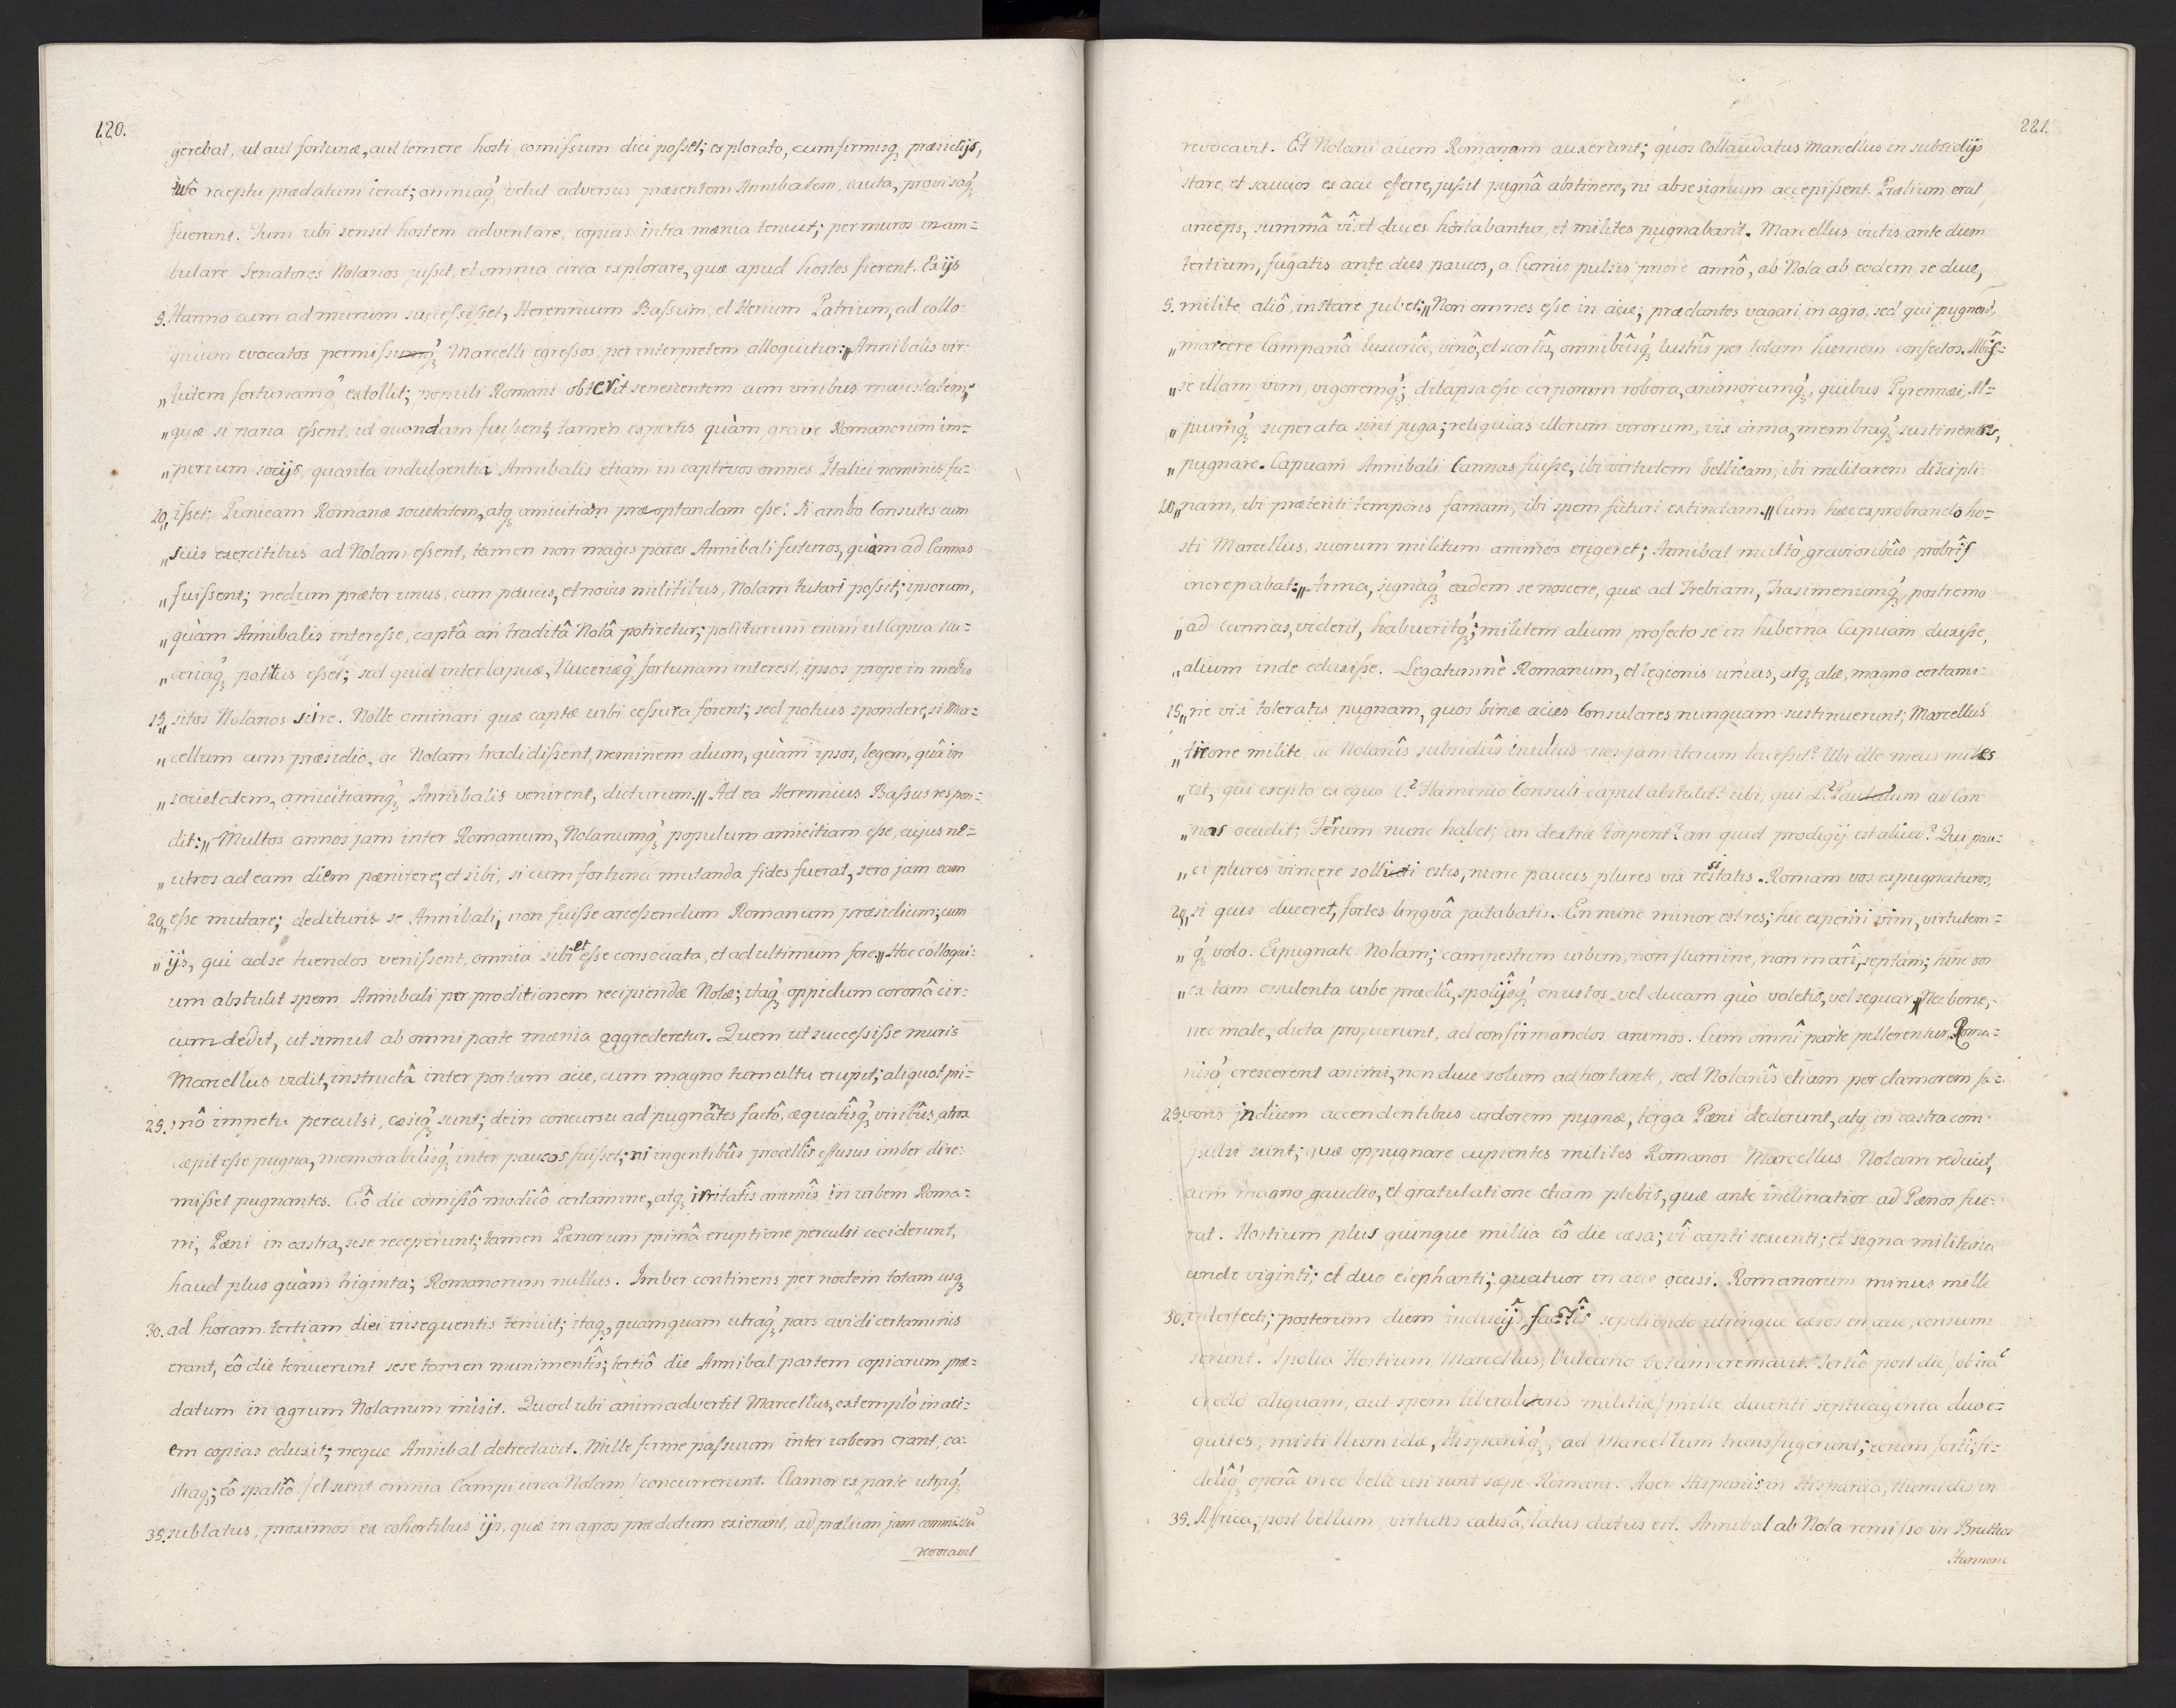 120.
gerebat, ut aut fortunæ, aut temere hosti comissum dici posset; explorato, cum firmisq́ præsidijs,
tutô receptu prædatum ierat; omniaq́ velut adversus præsentem Annibalem, cauta, provisaq́
fuerant. Tum ubi sensit hostem adventare, copias intra mænia tenuit; per muros inam=
bulare Senatores Nolanos jussit, et omnia circa explorare, quæ apud hostes fierent. Ex ijs
5. Hanno cum ad murum successisset, Herennium Bassum, et Herium Petrium, ad collo-
quium evocatos permissuq́ Marcelli egressos, per interpretem alloquitur: „Annibalis vir-
„tutem fortunamq́ extollit; populi Romani obterit senescentem cum viribus majestatem;
„quæ si paria essent, ut quondam fuissent, tamen expertis quàm grave Romanorum im=
„perium socijs, quanta indulgentia Annibalis etiam in captivos omnes Italici nominis fu=
10.„isset; Punicam Romanæ societatem, atq́ amicitiam præoptandam esse: Si ambo Consules cum
„suis exercitibus ad Nolam essent, tamen non magis pares Annibali futuros, quàm ad Cannas
„fuissent; nedum prætor unus, cum paucis, et novis militibus, Nolam tutari possit; ipsorum,
„quàm Annibalis interesse, captâ an traditâ Nolâ potiretur; potiturum enim ut Capua Nu=
„ceriaq́ potitus esset; sed quid inter Capuæ, Nuceriæq́ fortunam interest, ipsos prope in medio
15.„sitos Nolanos scire. Nolle ominari quæ captæ urbi cessura forent; sed potius spondere, si Mar=
„cellum cum præsidio, ac Nolam tradidissent, neminem alium, quàm ipsos, legem, quâ in
„societatem, amicitiamq́ Annibalis venirent, dicturum.„ Ad ea Herennius Bassus respon=
dit: „Multos annos jam inter Romanum, Nolanumq́ populum amicitiam esse, cujus ne=
„utros ad eam diem pænitere; et sibi, si cum fortuna mutanda fides fuerat, sero jam eam
20.„esse mutare; dedituris se Annibali, non fuisse arcessendum Romanum præsidium; cum
„ijs, qui ad se tuendos venissent, omnia sibi et esse consociata, et ad ultimum fore.„ Hoc colloqui-
um abstulit spem Annibali per proditionem recipiendæ Nolæ; itaq́ oppidum coronâ cir=
cumdedit, ut simul ab omni parte mænia aggrederetur. Quem ut successisse muris
Marcellus vidit, instructâ inter portam acie, cum magno tumultu erupit; aliquot pri=
25. mô impetu perculsi, cæsiq́ sunt; dein concursu ad pugnātes factô, æquatîsq́ viribûs, atrox
cæpit esse pugna, memorabilisq́ inter paucas fuisset; ni ingentibûs procellîs effusus imber dire-
misset pugnantes. Eô die comissô modicô certamine, atq́ irritatîs animîs in urbem Roma=
ni, Pæni in castra, sese receperunt; tamen Pænorum primâ eruptione perculsi ceciderunt,
haud plus quàm triginta; Romanorum nullus. Imber continens per noctem totam usq́
30. ad horam tertiam diei insequentis tenuit; itaq́, quamquam utraq́ pars avidi certaminis
erant, eô die tenuerunt sese tamen munimentîs; tertiô die Annibal partem copiarum præ=
datum in agrum Nolanum misit. Quod ubi animadvertit Marcellus, extemplò in aci=
em copias eduxit; neque Annibal detrectavit. Mille ferme passuum inter urbem erant, ca-
straq́; eô spatiô / et sunt omnia Campi circa Nolam / concurrerunt. Clamor ex parte utraq́
35. sublatus, proximos ex cohortibus ijs, quæ in agros prædatum exierant, ad prælium jam commissū
revocavit
221.
revocavit. Et Nolani aciem Romanam auxerunt; quos Collaudatus Marcellus in subsidijs
stare, et saucios ex acie efferre, jussit pugnâ abstinere, ni ab se signum accepissent. Prælium erat
anceps, summâ vî et duces hortabantur, et milites pugnabant. Marcellus victis ante diem
tertium, fugatis ante dies paucos, a Cumis pulsis priore annô, ab Nola ab eodem se duce,
5. milite aliô, instare jubet: „Non omnes esse in acie; prædantes vagari in agro, sed qui pugnent,
„marcere Campanâ luxuriâ, vinô, et scortîs, omnibûsq́ lustrîs per totam hiemem confectos. Abis-
„se illam vim, vigoremq́; dilapsa esse corporum robora, animorumq́, quibus Pyrennæi, Al=
„piumq́ superata sint juga; reliquias illorum virorum, vix arma, membraq́ sustinentes,
„pugnare. Capuam Annibali Cannas fuisse, ibi virtutem bellicam, ibi militarem discipli-
10.„nam, ibi præteriti temporis famam, ibi spem futuri extinctam.„ Cum hæc exprobrando ho=
sti Marcellus, suorum militum animos erigeret; Annibal multò gravioribûs probrîs
increpabat: „Arma, signaq́ eadem se noscere, quæ ad Trebiam, Trasimenumq́, postremo
„ad Cannas, viderit, habueritq́; militem alium profecto se in hiberna Capuam duxisse,
„alium inde eduxisse. Legatumnè Romanum, et legionis unius, atq́ alæ, magno certami-
15.„ne vix toleratis pugnam, quos binæ acies Consulares nunquam sustinuerunt; Marcellus
„tirone milite, ac Nolanîs subsidiîs inultus nos jam iterum lacessit? Ubi ille meus miles
„est, qui erepto ex equo C.? Flaminio Consuli caput abstulit? ubi, qui L.? Paulum ad Can
„nas occidit; Ferrum nunc habet; an dextræ torpent? an quid prodigij est aliud? Qui pau-
„ci plures vincere solliti estis, nunc paucis plures vix restatis. Romam vos expugnaturos,
20.„si quis duceret, fortes linguâ jactabatis. En nunc minor est res; hic experiri vim, virtutem=
„q́ volo. Expugnate Nolam; campestrem urbem, non flumine, non mari, septam; hinc vos
„ex tam opulenta urbe prædâ, spolijsq́ onustos vel ducam quò voletis, vel sequar.„ Nec bene,
nec male, dicta profuerunt, ad confirmandos animos. Cum omnî parte pellerentur, Roma=
nisq́ crescerent animi, non duce solum adhortante, sed Nolanîs etiam per clamorem fa=
25. voris indicem accendentibus ardorem pugnæ, terga Pæni dederunt, atq́ in castra com-
pulsi sunt; quæ oppugnare cupientes milites Romanos Marcellus Nolam reduxit,
cum magno gaudio, et gratulatione etiam plebis, quæ ante inclinatior ad Pænos fue-
rat. Hostium plus quinque millia eô die cæsa; vî capti sexcenti; et signa militaria
unde viginti; et duo elephanti; quatuor in acie occisi. Romanorum minus mille
30. interfecti; posterum diem induciîs factîs sepeliendo utrinque cæsos in acie, consum-
serunt. Spolia Hostium Marcellus, Vulcano votum cremavit. Tertiô post die / ob irā
credo aliquam, aut spem liberalioris militiæ / mille ducenti septuaginta duo e=
quites, misti Numidæ, Hispaniq́, ad Marcellum transfugerunt; eorum fortî, fi-
delîq́ operâ in eo bello usi sunt sæpe Romani. Ager Hispanis in Hispania, Numidis in
35. Africa, post bellum, virtutis causâ, latus datus est. Annibal ab Nola remisso in Bruttios
Hannone